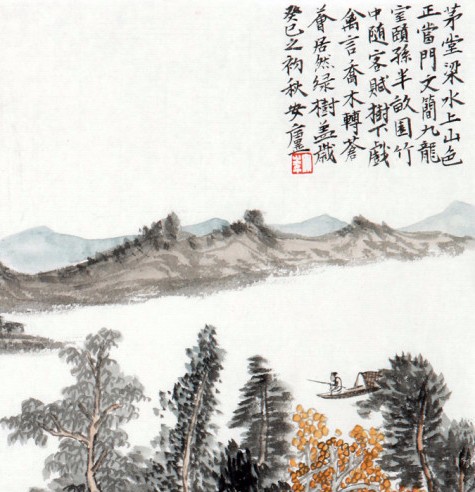 茅堂梁水上山色
正當門文簡九龍
室頤孫半畝園竹
中随客賦樹下戲
禽言喬木轉蒼
薈居然绿樹蓋歲
癸巳之初秋安廬